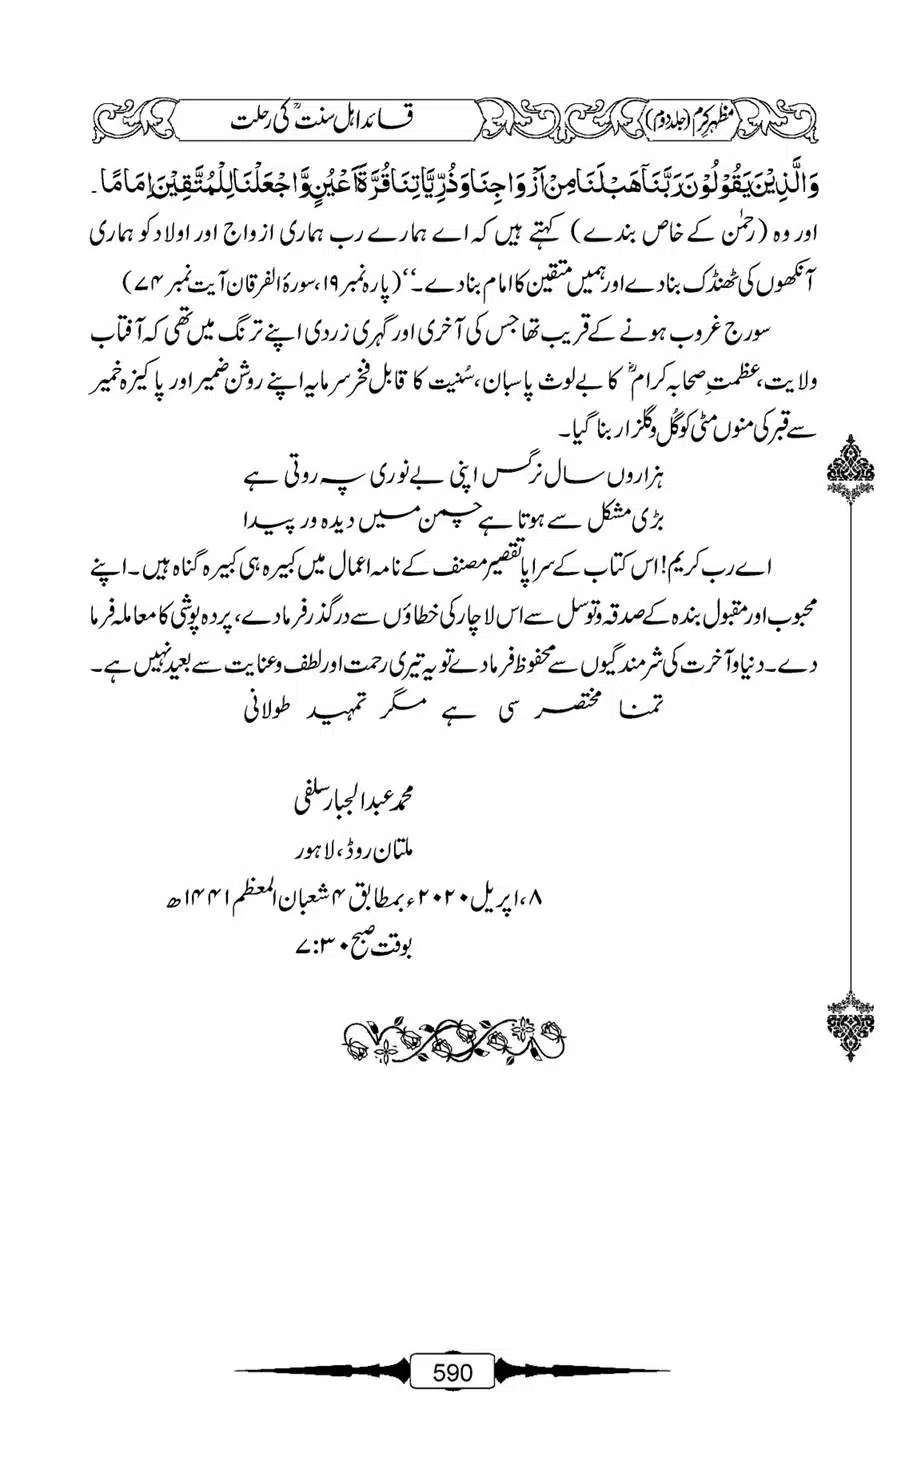 مظہرِ کرم (جلد دوم)
قائد اہل سنتؒ کی رحلت
وَالَّذِیْنَ یَقُوْلُوْنَ رَبَّنَا هَبْ لَنَا مِنْ اَزْوَاجِنَا وَذُرِّیَّاتِنَا قُرَّةَ اَعْیُنٍ وَّاجْعَلْنَا لِلْمُتَّقِیْنَ اِمَامًا۔
اور وہ (رحمٰن کے خاص بندے) کہتے ہیں کہ اے ہمارے رب ہماری ازواج اور اولاد کو ہماری
آنکھوں کی ٹھنڈک بنا دے اور ہمیں متقین کا امام بنا دے۔‘‘ (پارہ نمبر ۱۹، سورۂ الفرقان آیت نمبر ۷۴)
سورج غروب ہونے کے قریب تھا جس کی آخری اور گہری زردی اپنے ترنگ میں تھی کہ آفتاب
ولایت، عظمتِ صحابہ کرامؓ کا بے لوث پاسبان، سُنیت کا قابل فخر سرمایہ اپنے روشن ضمیر اور پاکیزہ خمیر
سے قبر کی منوں مٹی کو گُل و گلزار بنا گیا۔
ہزاروں سال نرگس اپنی بے نوری پہ روتی ہے
بڑی مشکل سے ہوتا ہے چمن میں دیدہ ور پیدا
اے رب کریم! اس کتاب کے سراپا تقصیر مصنف کے نامہ اعمال میں کبیرہ ہی کبیرہ گناہ ہیں۔ اپنے
محبوب اور مقبول بندہ کے صدقہ و توسل سے اس لاچار کی خطاؤں سے درگذر فرما دے، پردہ پوشی کا معاملہ فرما
دے۔ دنیا و آخرت کی شرمندگیوں سے محفوظ فرما دے تو یہ تیری رحمت اور لطف و عنایت سے بعید نہیں ہے۔
تمنا مختصر سی ہے مگر تمہید طولانی
محمد عبدالجبار سلفی
ملتان روڈ، لاہور
۸، اپریل ۲۰۲۰ء بمطابق ۴ شعبان المعظم ۱۴۴۱ھ
بوقت صبح ۷:۳۰
590